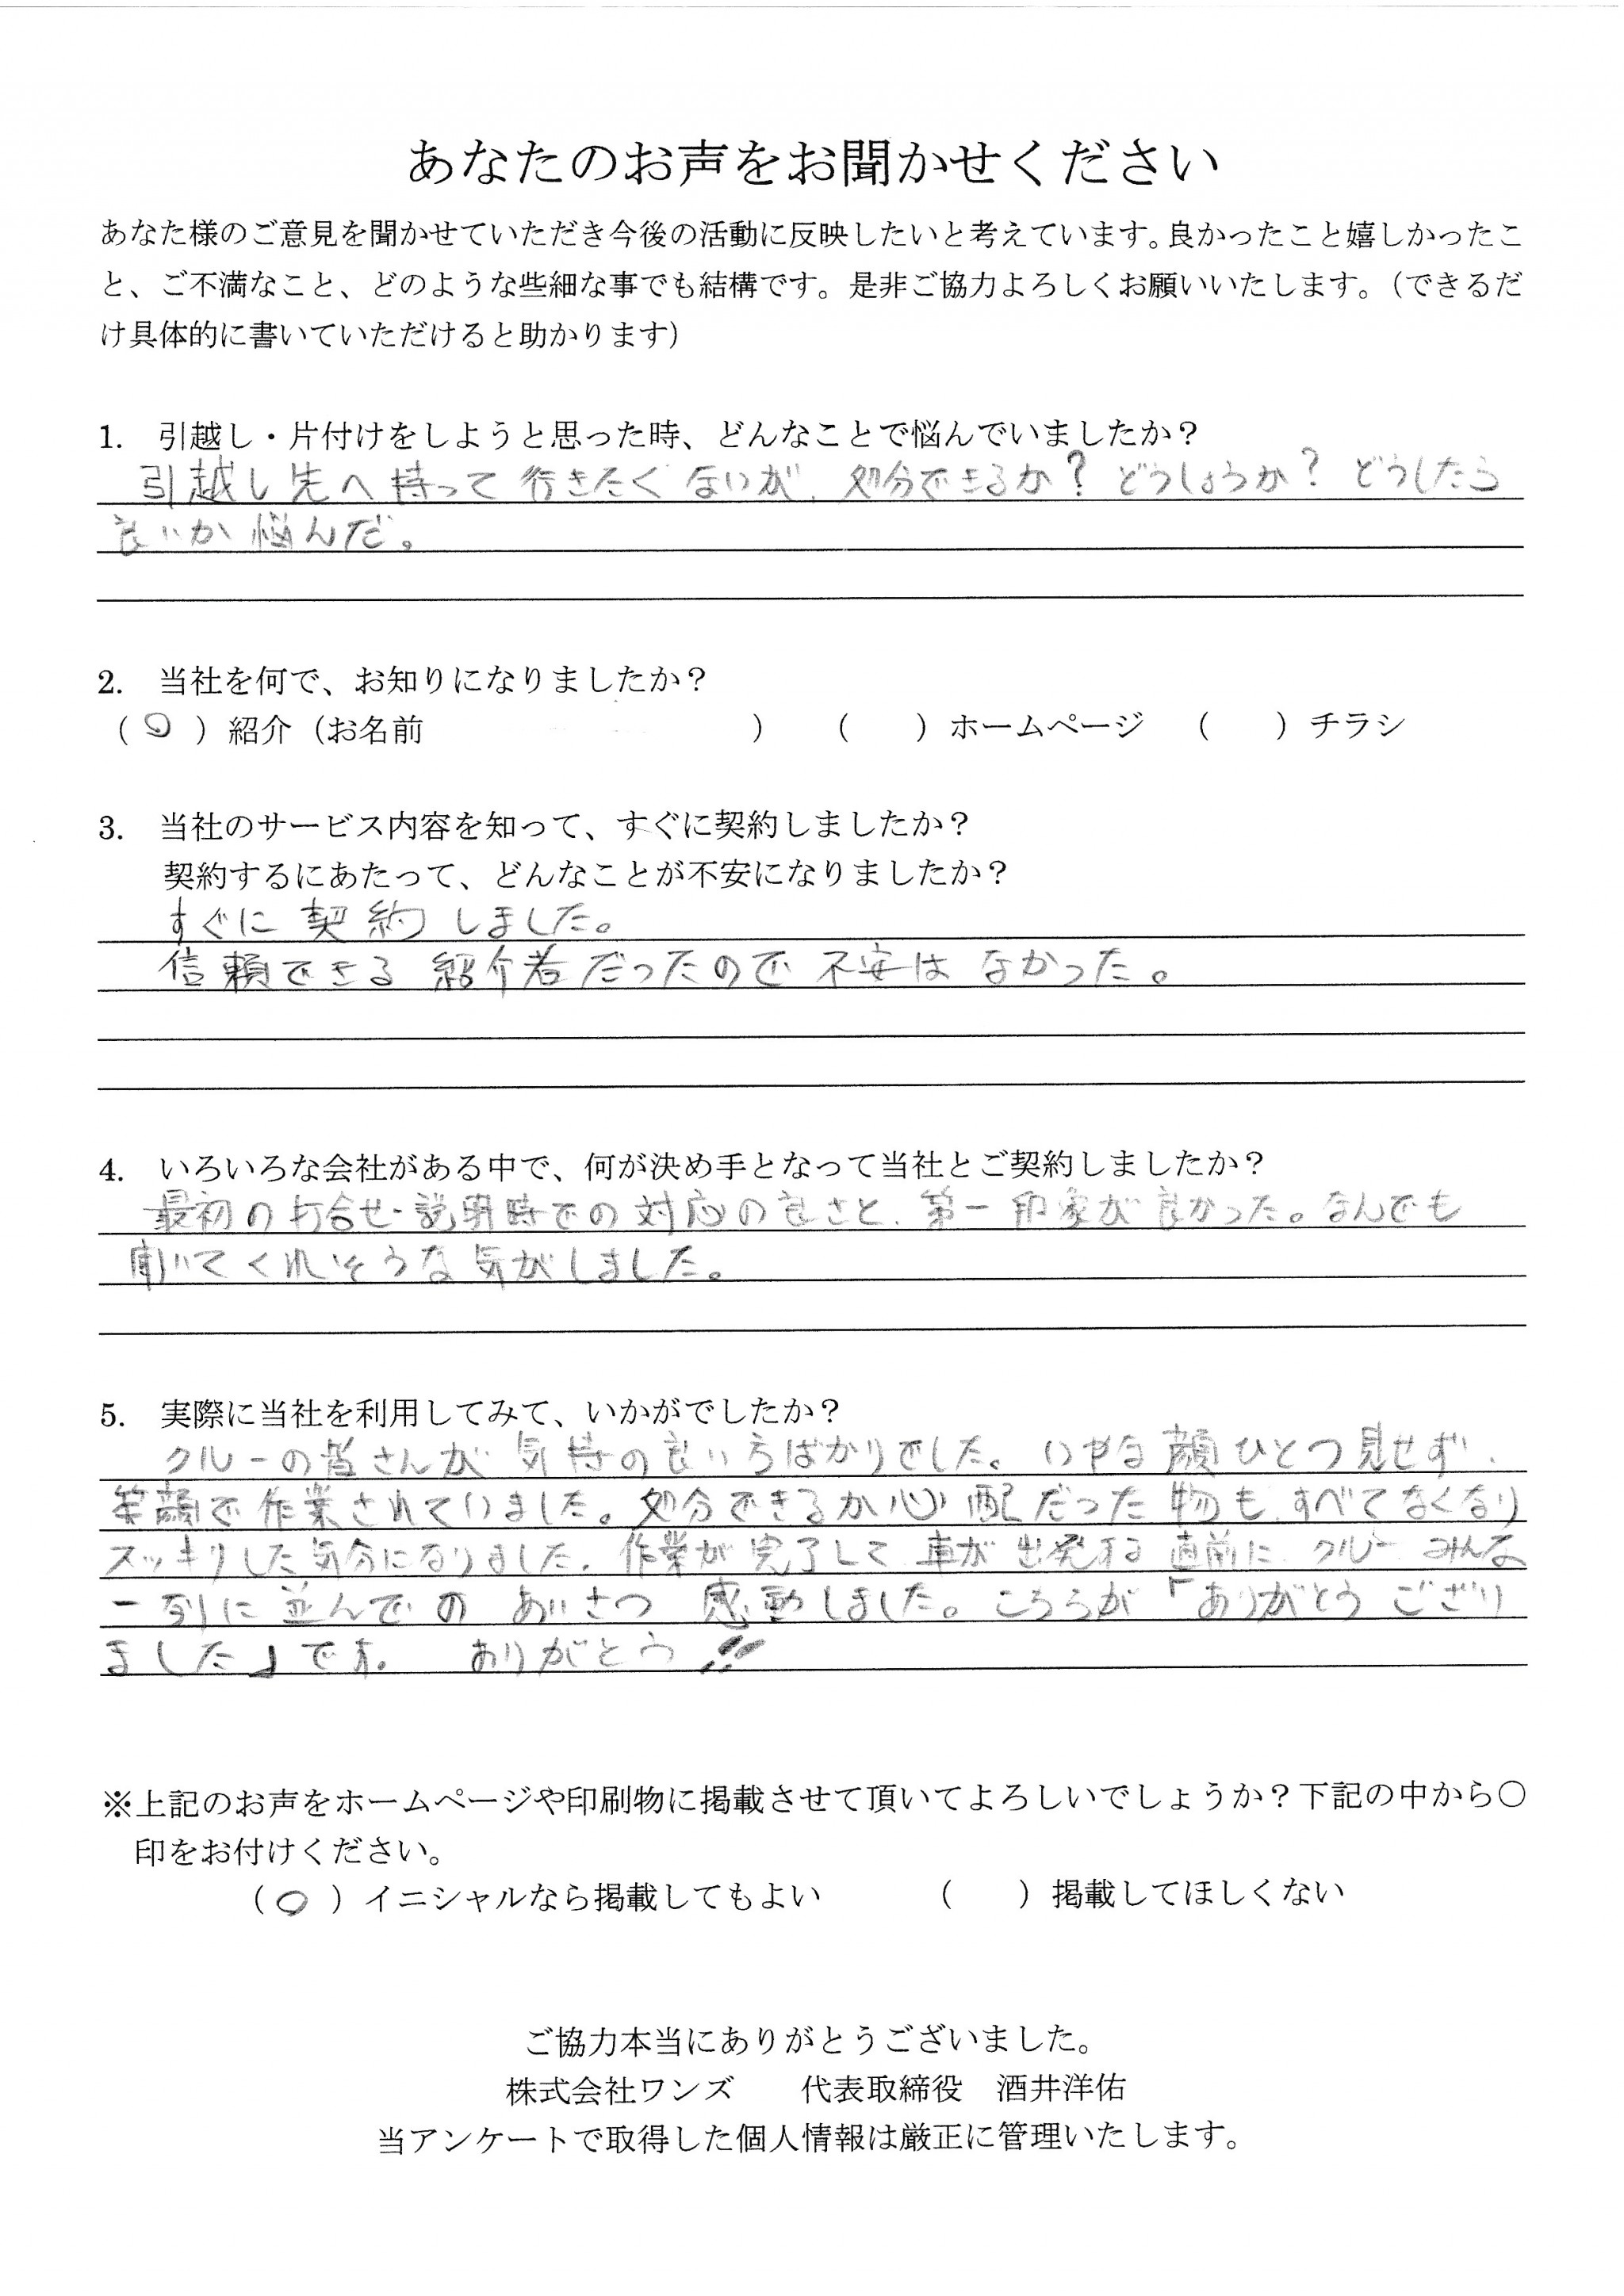 あなたのお声をお聞かせください
あなた様のご意見を聞かせていただき今後の活動に反映したいと考えています。良かったこと嬉しかったこ
と、ご不満なこと、どのような些細な事でも結構です。是非ご協力よろしくお願いいたします。（できるだ
け具体的に書いていただけると助かります）
1. 引越し・片付けをしようと思った時、どんなことで悩んでいましたか？
引越し先へ持って行きたくないが、処分できるか？どうしょうか？どうしたら
良いか悩んだ。
2. 当社を何で、お知りになりましたか？
（○）紹介（お名前　　　　）　（　）ホームページ　（　）チラシ
3. 当社のサービス内容を知って、すぐに契約しましたか？
契約するにあたって、どんなことが不安になりましたか？
すぐに契約しました。
信頼できる紹介者だったので不安はなかった。
4. いろいろな会社がある中で、何が決め手となって当社とご契約しましたか？
最初の打合せ・説明時での対応の良さと、第一印象が良かった。なんでも
聞いてくれそうな気がしました。
5. 実際に当社を利用してみて、いかがでしたか？
クルーの皆さんが気持の良い方ばかりでした。いやな顔ひとつ見せず、
笑顔で作業されていました。処分できるか心配だった物も、すべてなくなり
スッキリした気分になりました。作業が完了して車が出発する直前に、クルーみんな
一列に並んでのあいさつ 感動しました。こちらが「ありがとうござり
ました」です。 ありがとう!!
※上記のお声をホームページや印刷物に掲載させて頂いてよろしいでしょうか？下記の中から〇
印をお付けください。
（○）イニシャルなら掲載してもよい　（　）掲載してほしくない
ご協力本当にありがとうございました。
株式会社ワンズ　代表取締役　酒井洋佑
当アンケートで取得した個人情報は厳正に管理いたします。